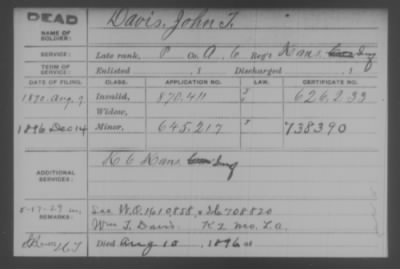 DEAD
Davis, John T.
NAME OF SOLDIER:
SERVICE:
Late rank, P Co. A, 6 Reg't Kans. Inf
TERM OF SERVICE:
Enlisted , 1 Discharged , 1
DATE OF FILING. CLASS. APPLICATION NO. LAW. CERTIFICATE NO.
Aug. 9 Invalid, 870.411 626.233
Widow,
1896 Dec 14 Minor, 645.217 738390
ADDITIONAL SERVICES:
K 6 Kans. Inf
REMARKS:
See W.O. 1610858
Wm T. Davis. K 2 Mo. L.A.
Died Aug 10, 1896 at